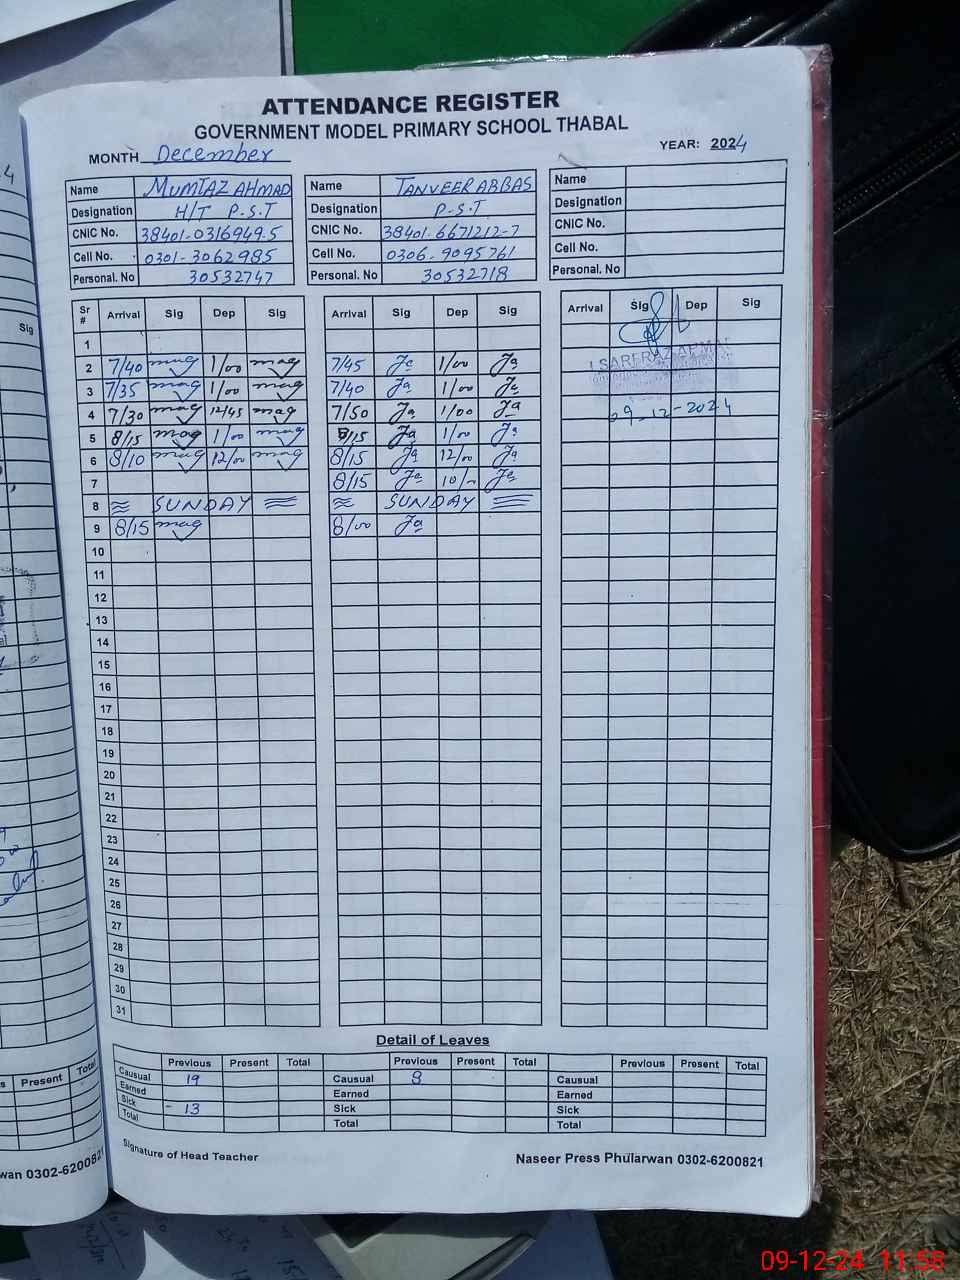 ATTENDANCE REGISTER
GOVERNMENT MODEL PRIMARY SCHOOL THABAL
MONTH December YEAR: 2024
Name MUMTAZ AHMAD Name TANVEER ABBAS Name
Designation H/T P.S.T Designation P.S.T Designation
CNIC No. 38401-0316949-5 CNIC No. 38401-6671212-7 CNIC No.
Cell No. 0301-3062985 Cell No. 0306-9095761 Cell No.
Personal. No 30532747 Personal. No 30532718 Personal. No
Sr # Arrival Sig Dep Sig Arrival Sig Dep Sig Arrival Sig Dep Sig
1
2 7/40 mag 1/00 mag 7/45 1/00
3 7/35 mag 1/00 mag 7/40 1/00
4 7/30 mag 12/45 mag 7/50 1/00
29-12-2024
5 8/15 mag 1/00 mag 8/15 1/00
6 8/10 mag 12/00 mag 8/15 12/00
7 8/15 10/
8 SUNDAY SUNDAY
9 8/15 mag 8/00
10
11
12
13
14
15
16
17
18
19
20
21
22
23
24
25
26
27
28
29
30
31
Detail of Leaves
Previous Present Total Previous Present Total Previous Present Total
Causual 19 Causual 8 Causual
Earned Earned Earned
Sick - 13 Sick Sick
Total Total Total
Signature of Head Teacher Naseer Press Phularwan 0302-6200821
Sig
Present Total
wan 0302-6200821
09-12-24 11:58